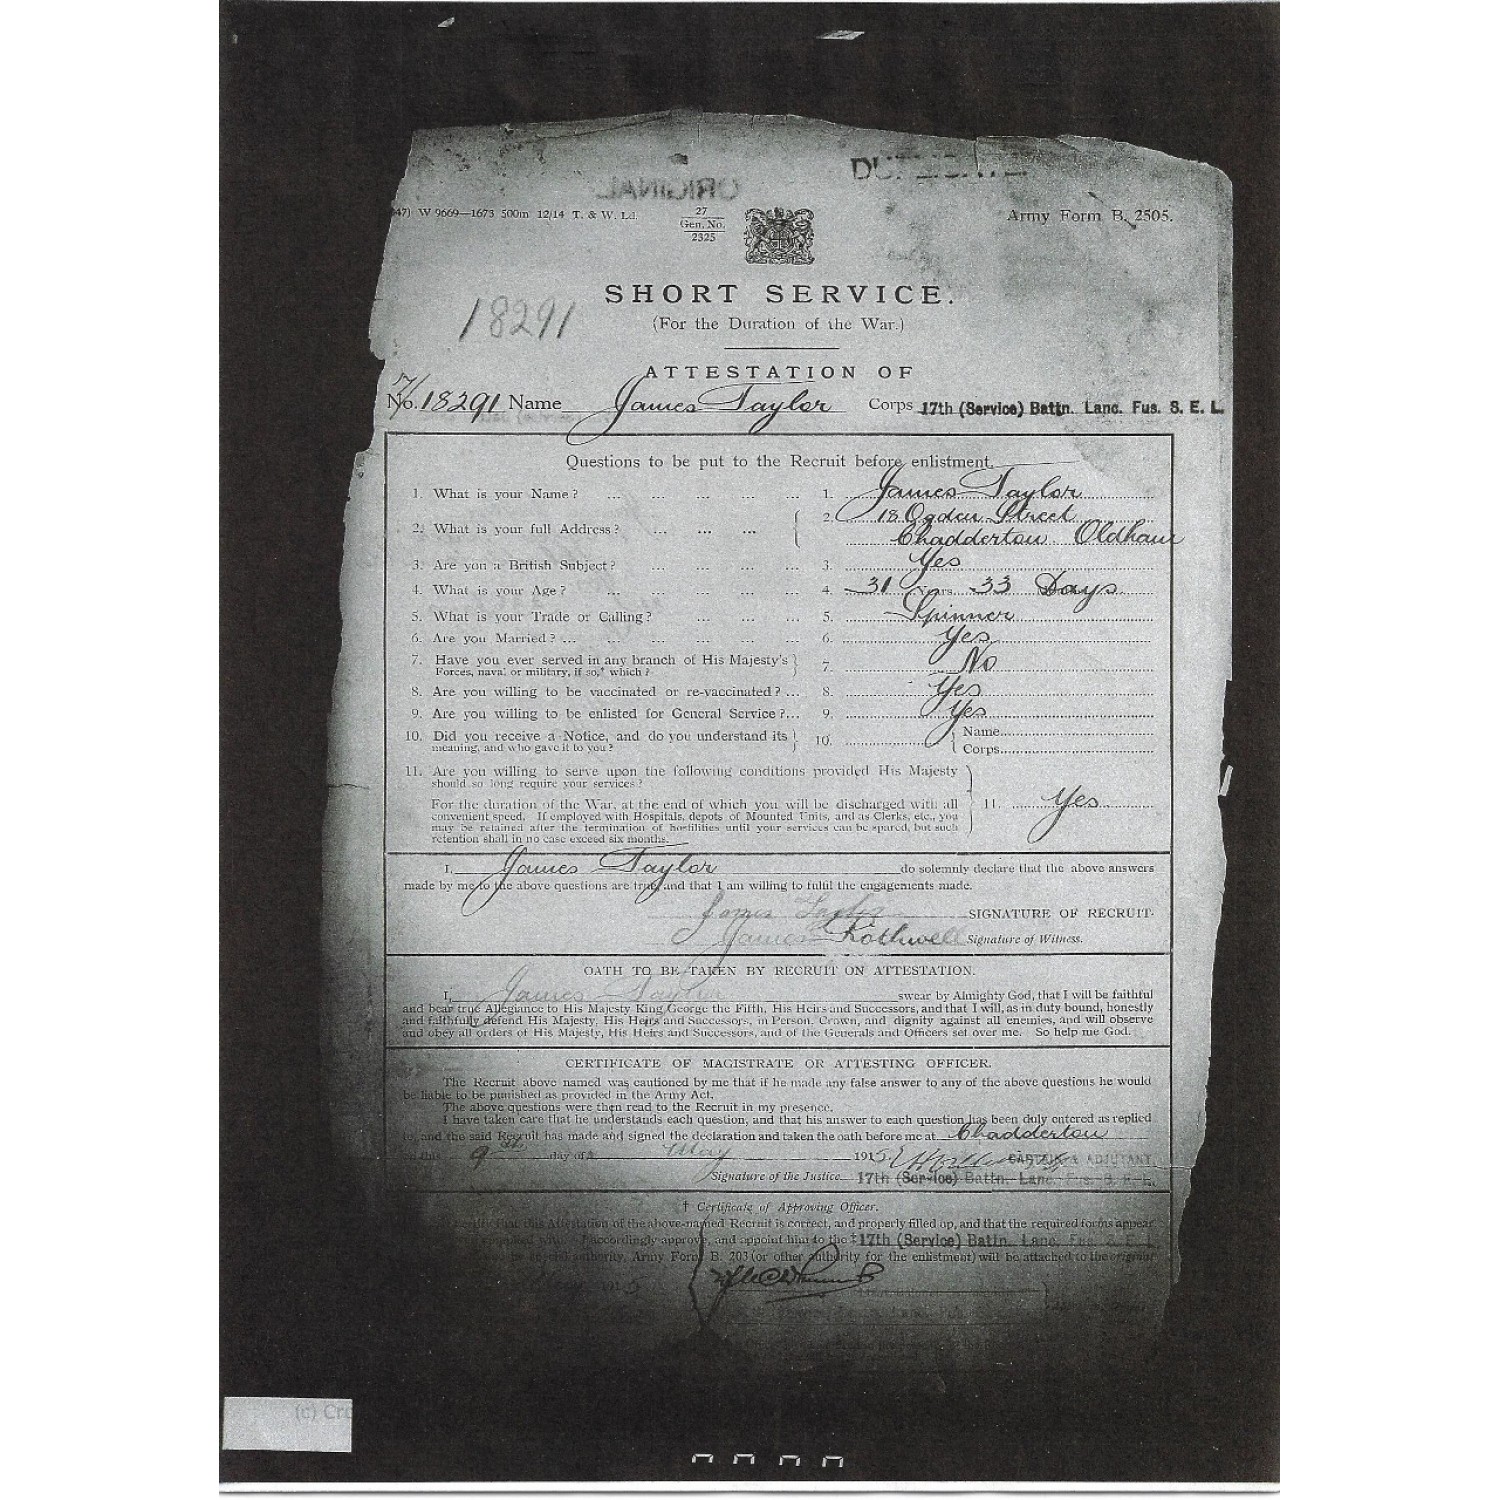 ORIGINAL
DUPLICATE
47) W 9669—1673 500m 12/14 T. & W. Ld.
27
Gen. No.
2325
Army Form B. 2505.
SHORT SERVICE.
(For the Duration of the War.)
18291
ATTESTATION OF
No. 7/18291 Name James Taylor Corps 17th (Service) Battn. Lanc. Fus. S. E. L.
Questions to be put to the Recruit before enlistment.
1. What is your Name? ... ... ... ... ... 1. James Taylor
2. What is your full Address? ... ... ... 2. 18 Ogden Street
Chadderton Oldham
3. Are you a British Subject? ... ... ... ... 3. Yes
4. What is your Age? ... ... ... ... ... 4. 31 Years 33 Days
5. What is your Trade or Calling? ... ... ... 5. Spinner
6. Are you Married? ... ... ... ... ... ... 6. Yes
7. Have you ever served in any branch of His Majesty's
Forces, naval or military, if so,* which? 7. No
8. Are you willing to be vaccinated or re-vaccinated? ... 8. Yes
9. Are you willing to be enlisted for General Service?... 9. Yes
10. Did you receive a Notice, and do you understand its
meaning, and who gave it to you? 10. Name
Corps
11. Are you willing to serve upon the following conditions provided His Majesty
should so long require your services?
For the duration of the War, at the end of which you will be discharged with all
convenient speed. If employed with Hospitals, depots of Mounted Units, and as Clerks, etc., you
may be retained after the termination of hostilities until your services can be spared, but such
retention shall in no case exceed six months.
11. Yes
I, James Taylor do solemnly declare that the above answers
made by me to the above questions are true, and that I am willing to fulfil the engagements made.
James Taylor SIGNATURE OF RECRUIT.
James Rothwell Signature of Witness.
OATH TO BE TAKEN BY RECRUIT ON ATTESTATION.
I, James Taylor swear by Almighty God, that I will be faithful
and bear true Allegiance to His Majesty King George the Fifth, His Heirs and Successors, and that I will, as in duty bound, honestly
and faithfully defend His Majesty, His Heirs and Successors, in Person, Crown, and dignity against all enemies, and will observe
and obey all orders of His Majesty, His Heirs and Successors, and of the Generals and Officers set over me. So help me God.
CERTIFICATE OF MAGISTRATE OR ATTESTING OFFICER.
The Recruit above named was cautioned by me that if he made any false answer to any of the above questions he would
be liable to be punished as provided in the Army Act.
The above questions were then read to the Recruit in my presence.
I have taken care that he understands each question, and that his answer to each question has been duly entered as replied
to, and the said Recruit has made and signed the declaration and taken the oath before me at Chadderton
on this 9th day of May 1915 CAPTAIN & ADJUTANT
Signature of the Justice 17th (Service) Battn. Lanc. Fus. S. E. L.
† Certificate of Approving Officer.
certify that this Attestation of the above-named Recruit is correct, and properly filled up, and that the required forms appear
accordingly approve, and appoint him to the ‡ 17th (Service) Battn. Lanc. Fus. S. E. L.
by special authority, Army Form B. 203 (or other authority for the enlistment) will be attached to the original
May 1915
(c) Cro